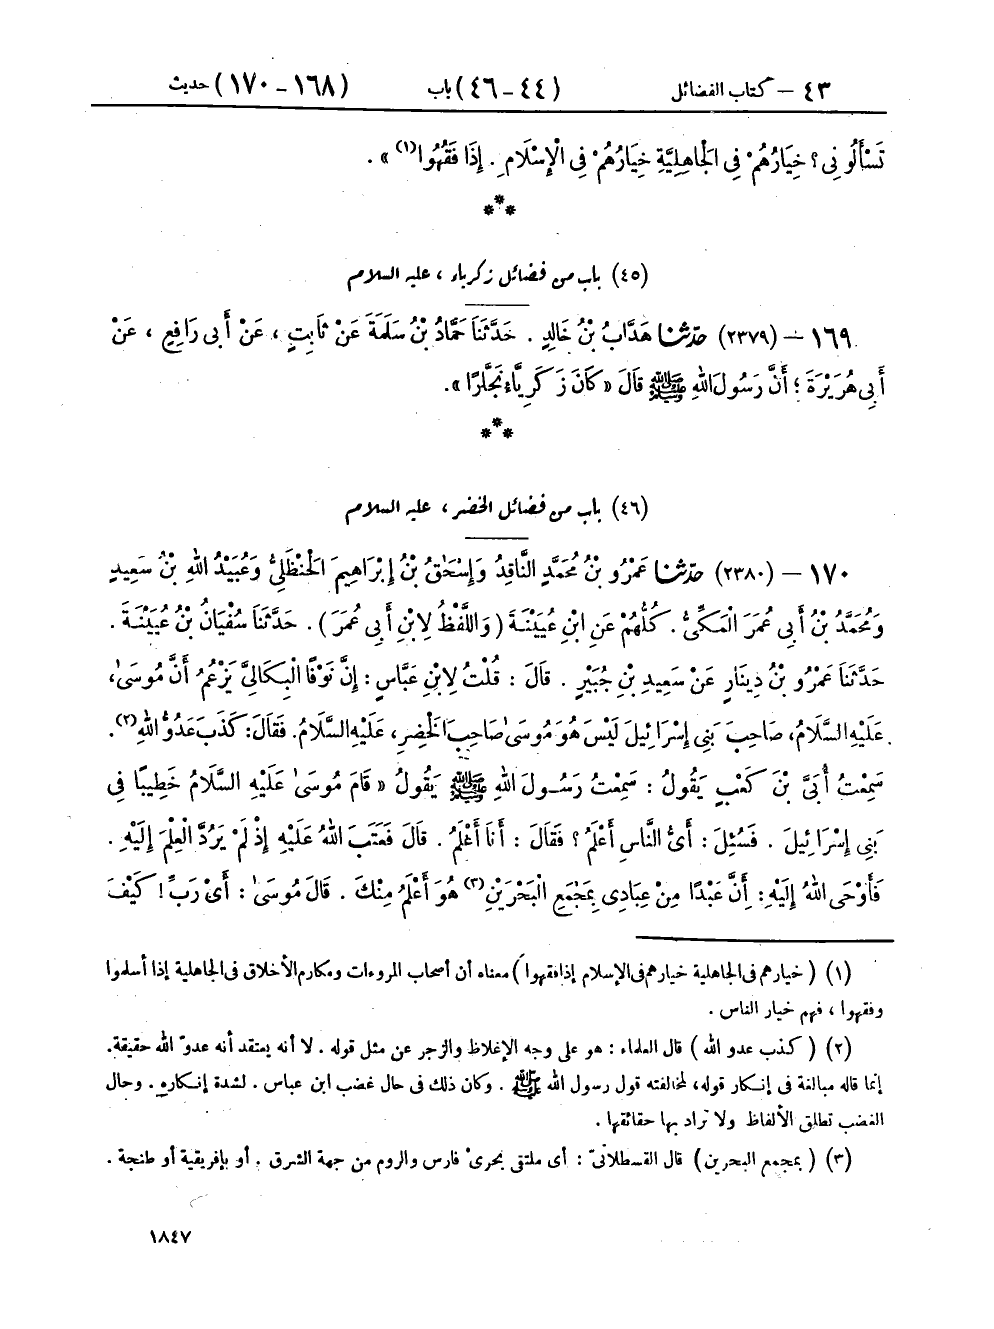 ٤٣ – كتاب الفضائل (٤٤ - ٤٦) باب (١٦٨ - ١٧٠) حديث
تَسْأَلُونِى؟ خِيَارُهُمْ فِى الْجَاهِلِيَّةِ خِيَارُهُمْ فِى الْإِسْلَامِ. إِذَا فَقُهُوا(١)».
***
(٤٥) باب من فضائل زكرياء، عليه السلام
١٦٩ – (٢٣٧٩) حدّثنا هَدَّابُ بْنُ خَالِدٍ. حَدَّثَنَا حَمَّادُ بْنُ سَلَمَةَ عَنْ ثَابِتٍ، عَنْ أَبِى رَافِعٍ، عَنْ
أَبِى هُرَيْرَةَ؛ أَنَّ رَسُولَ اللهِ ﷺ قَالَ «كَانَ زَكَرِيَّاءُ نَجَّارًا».
***
(٤٦) باب من فضائل الخضر، عليه السلام
١٧٠ – (٢٣٨٠) حدّثنا عَمْرُو بْنُ مُحَمَّدٍ النَّاقِدُ وَإِسْحَٰقُ بْنُ إِبْرَاهِيمَ الْحَنْظَلِىُّ وَعُبَيْدُ اللهِ بْنُ سَعِيدٍ
وَمُحَمَّدُ بْنُ أَبِى عُمَرَ الْمَكِّىُّ. كُلُّهُمْ عَنِ ابْنِ عُيَيْنَةَ (وَاللَّفْظُ لِابْنِ أَبِى عُمَرَ). حَدَّثَنَا سُفْيَانُ بْنُ عُيَيْنَةَ.
حَدَّثَنَا عَمْرُو بْنُ دِينَارٍ عَنْ سَعِيدِ بْنِ جُبَيْرٍ. قَالَ: قُلْتُ لِابْنِ عَبَّاسٍ: إِنَّ نَوْفًا الْبِكَالِىَّ يَزْعُمُ أَنَّ مُوسَىٰ،
عَلَيْهِ السَّلَامُ، صَاحِبَ بَنِى إِسْرَائِيلَ لَيْسَ هُوَ مُوسَىٰ صَاحِبَ الْخَضِرِ، عَلَيْهِ السَّلَامُ. فَقَالَ: كَذَبَ عَدُوُّ اللهِ(٢).
سَمِعْتُ أُبَىَّ بْنَ كَعْبٍ يَقُولُ: سَمِعْتُ رَسُولَ اللهِ ﷺ يَقُولُ «قَامَ مُوسَىٰ عَلَيْهِ السَّلَامُ خَطِيبًا فِى
بَنِى إِسْرَائِيلَ. فَسُئِلَ: أَىُّ النَّاسِ أَعْلَمُ؟ فَقَالَ: أَنَا أَعْلَمُ. قَالَ فَعَتَبَ اللهُ عَلَيْهِ إِذْ لَمْ يَرُدَّ الْعِلْمَ إِلَيْهِ.
فَأَوْحَى اللهُ إِلَيْهِ: أَنَّ عَبْدًا مِنْ عِبَادِى بِمَجْمَعِ الْبَحْرَيْنِ(٣) هُوَ أَعْلَمُ مِنْكَ. قَالَ مُوسَىٰ: أَىْ رَبِّ! كَيْفَ
(١) (خيارهم فى الجاهلية خيارهم فى الإسلام إذا فقهوا) معناه أن أصحاب المروءات ومكارم الأخلاق فى الجاهلية إذا أسلموا
وفقهوا، فهم خيار الناس.
(٢) (كذب عدو الله) قال العلماء: هو على وجه الإغلاظ والزجر عن مثل قوله. لا أنه يعتقد أنه عدوّ الله حقيقة.
إنما قاله مبالغة فى إنكار قوله، لمخالفته قول رسول الله ﷺ. وكان ذلك فى حال غضب ابن عباس. لشدة إنكاره. وحال
الغضب تطلق الألفاظ ولا تراد بها حقائقها.
(٣) (بمجمع البحرين) قال القسطلانىّ: أى ملتقى بحرى فارس والروم من جهة الشرق. أو بإفريقية أو طنجة.
١٨٤٧